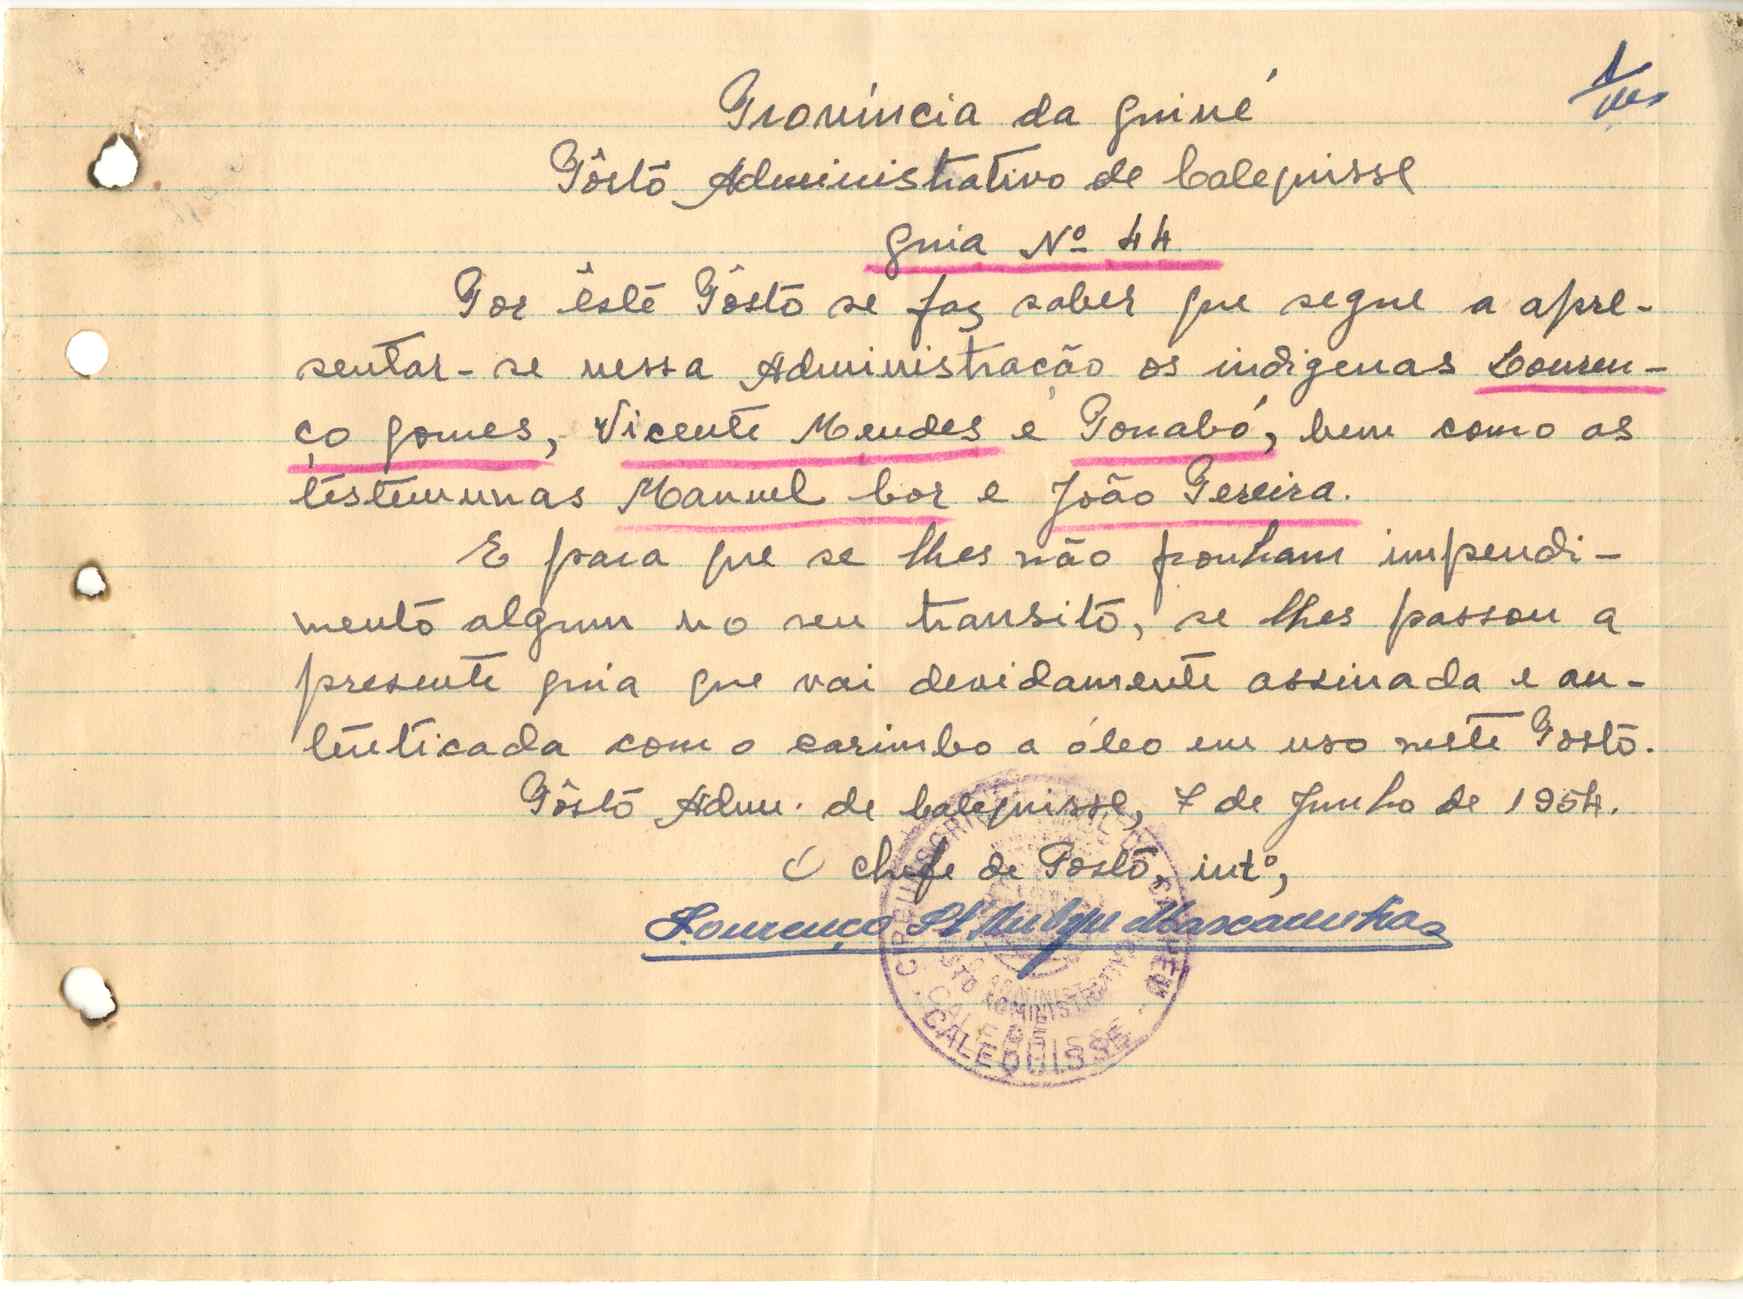 Província da Guiné
Pôsto Administrativo de Calequisse
Guia Nº 44
Por êste Pôsto se faz saber que segue a apre-
sentar-se nessa Administração os indigenas Louren-
ço Gomes, Vicente Mendes e Ponabó, bem como as
testemunas Manuel Cor e João Pereira.
E para que se lhes não ponham impendi-
mento algum no seu transito, se lhes passou a
presente guia que vai devidamente assinada e au-
tenticada com o carimbo a óleo em uso neste Posto.
Pôsto Adm. de Calequisse, 7 de Junho de 1954.
O Chefe de Posto, intº,
Lourenço Mascarenhas
CIRCUNSCRIÇÃO
POSTO ADMINISTRATIVO
DE
CALEQUISSE